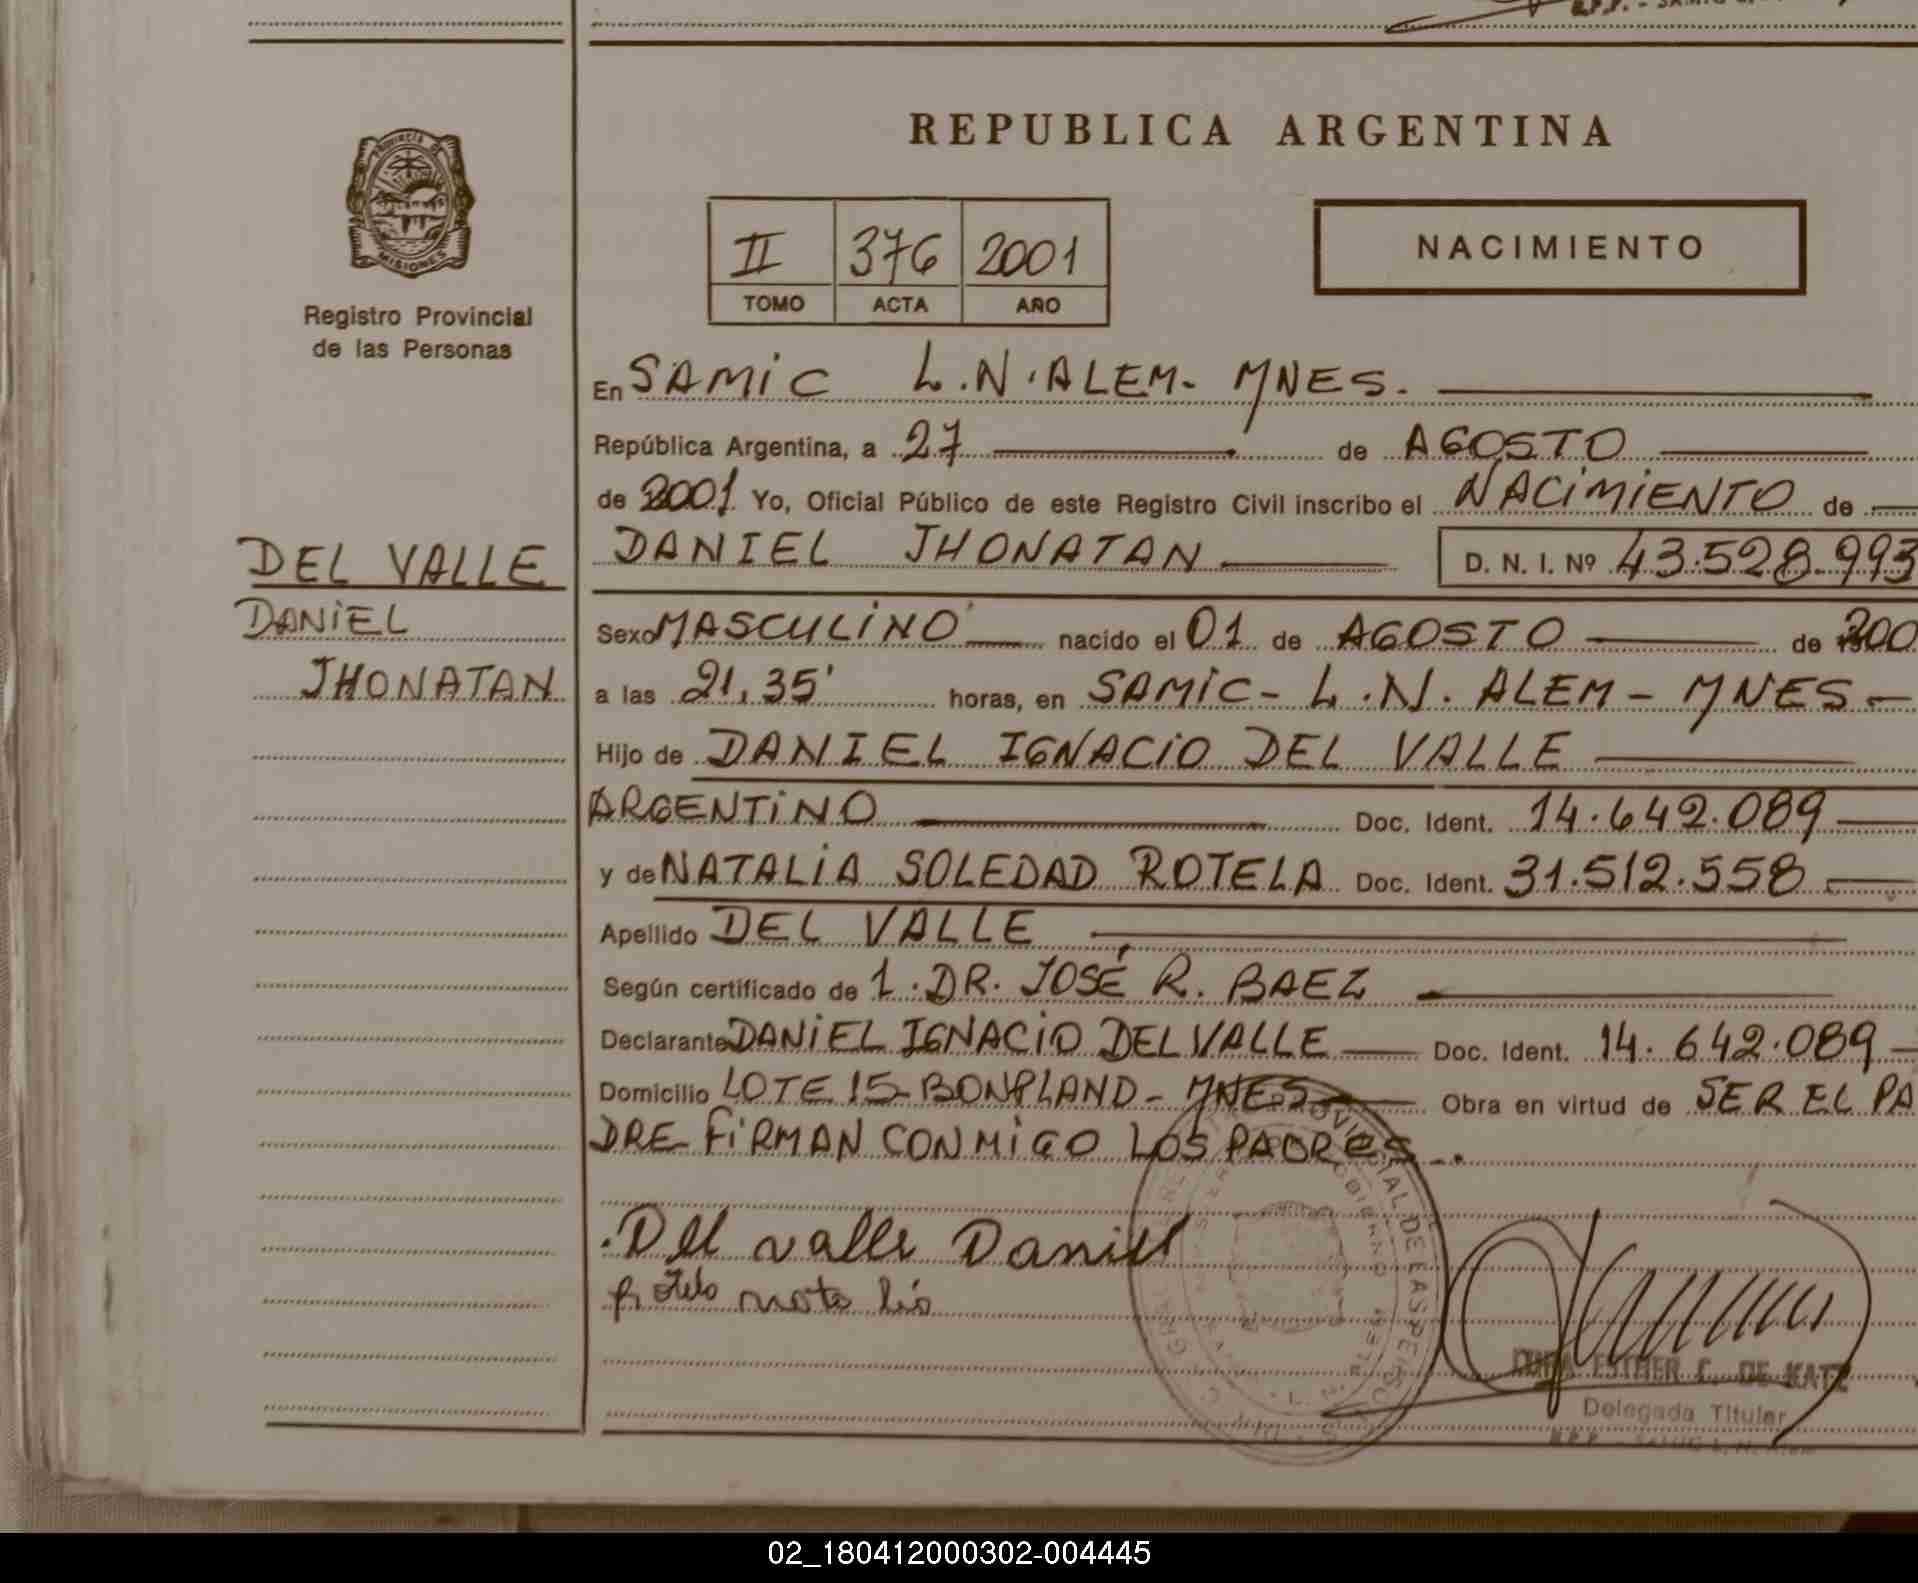 REPUBLICA ARGENTINA
PROVINCIA DE
MISIONES
Registro Provincial
de las Personas
II 376 2001
TOMO ACTA AÑO
NACIMIENTO
En SAMIC L.N. ALEM - MNES.
República Argentina, a 27 de AGOSTO
de 2001 Yo, Oficial Público de este Registro Civil inscribo el NACIMIENTO de
DANIEL JHONATAN D. N. I. Nº 43.528.993
DEL VALLE
DANIEL
JHONATAN
Sexo MASCULINO nacido el 01 de AGOSTO de 200
a las 21,35' horas, en SAMIC - L.N. ALEM - MNES -
Hijo de DANIEL IGNACIO DEL VALLE
ARGENTINO Doc. Ident. 14.642.089
y de NATALIA SOLEDAD ROTELA Doc. Ident. 31.512.558
Apellido DEL VALLE
Según certificado de 1. DR. JOSÉ R. BAEZ
Declarante DANIEL IGNACIO DEL VALLE Doc. Ident. 14.642.089
Domicilio LOTE 15 - BONPLAND - MNES Obra en virtud de SER EL PA
DRE - FIRMAN CONMIGO LOS PADRES.
Del valle Daniel
ESTHER C. DE KATZ
Delegada Titular
02_180412000302-004445